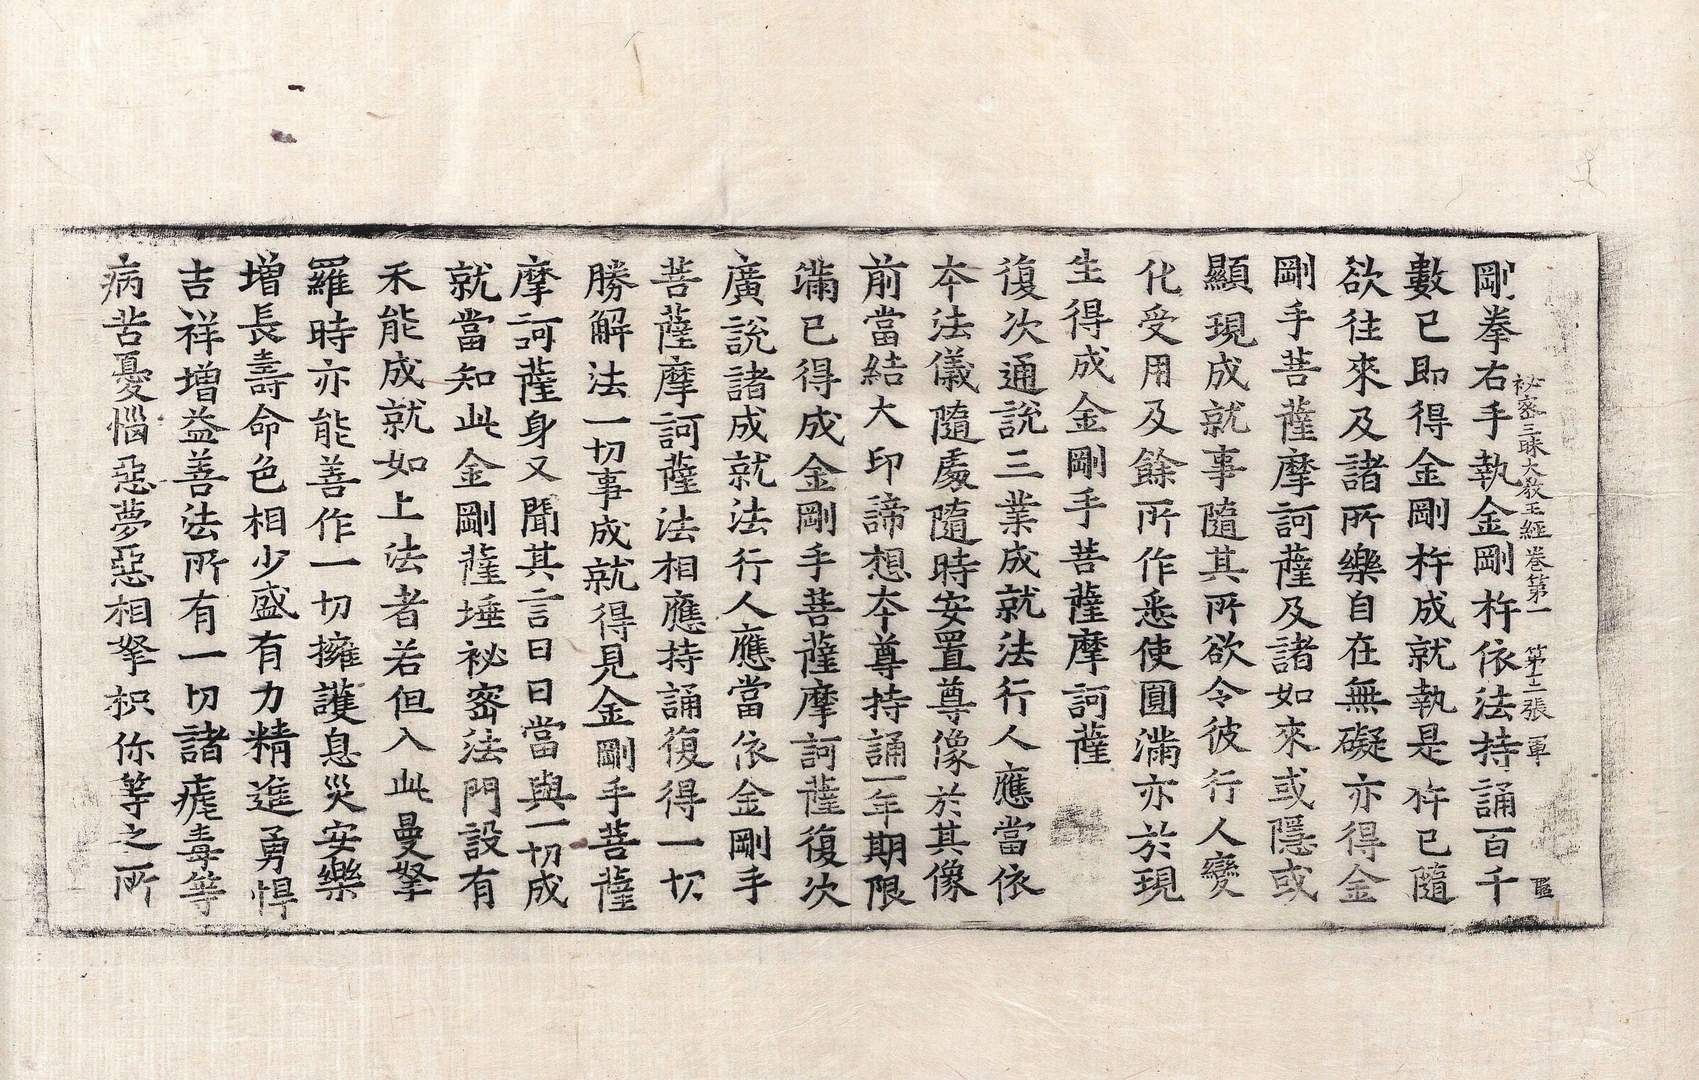 祕密三昧大教王經卷第一 第十二張 軍
剛拳右手執金剛杵依法持誦百千
數已即得金剛杵成就執是杵已隨
欲往來及諸所樂自在無礙亦得金
剛手菩薩摩訶薩及諸如來或隱或
顯現成就事隨其所欲令彼行人變
化受用及餘所作悉使圓滿亦於現
生得成金剛手菩薩摩訶薩
復次通說三業成就法行人應當依
本法儀隨處隨時安置尊像於其像
前當結大印諦想本尊持誦一年期限
滿已得成金剛手菩薩摩訶薩復次
廣說諸成就法行人應當依金剛手
菩薩摩訶薩法相應持誦復得一切
勝解法一切事成就得見金剛手菩薩
摩訶薩身又聞其言曰日當與一切成
就當知此金剛薩埵祕密法門設有
未能成就如上法者若但入此曼拏
羅時亦能善作一切擁護息災安樂
增長壽命色相少盛有力精進勇悍
吉祥增益善法所有一切諸瘧毒等
病苦憂惱惡夢惡相拏枳你等之所